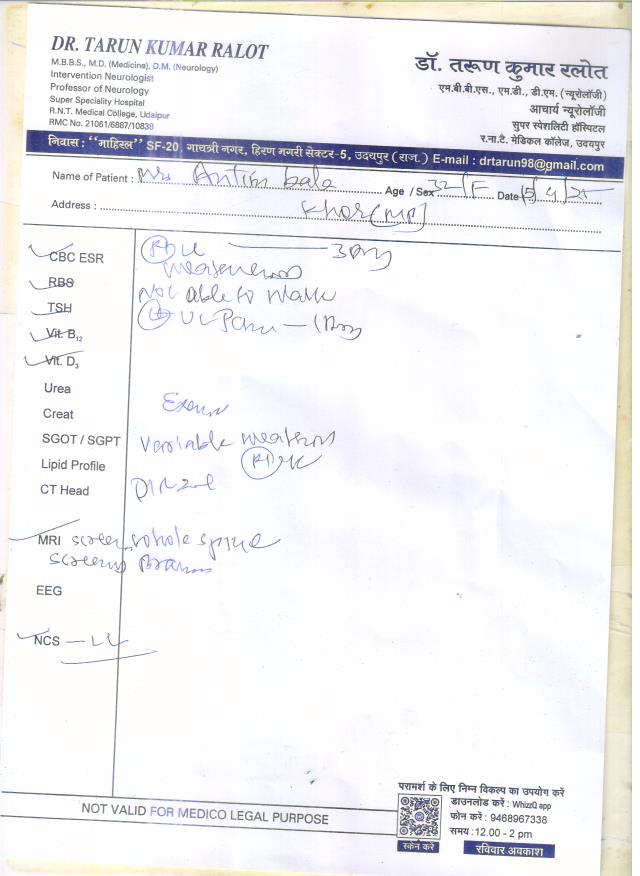 DR. TARUN KUMAR RALOT
M.B.B.S., M.D. (Medicine), D.M. (Neurology)
Intervention Neurologist
Professor of Neurology
Super Speciality Hospital
R.N.T. Medical College, Udaipur
RMC No. 21061/6887/10838
डॉ. तरूण कुमार रलोत
एम.बी.बी.एस., एम.डी., डी.एम. (न्यूरोलॉजी)
आचार्य न्यूरोलॉजी
सुपर स्पेशलिटी हॉस्पिटल
र.ना.टै. मेडिकल कॉलेज, उदयपुर
निवास : "माहिरल" SF-20, गायत्री नगर, हिरण मगरी सेक्टर-5, उदयपुर (राज.) E-mail : drtarun98@gmail.com
Name of Patient : Mrs Antim bala Age / Sex 32/F Date 15/4/25
Address : Khor (MP)
CBC ESR
RBS
TSH
Vit. B12
Vit. D3
Urea
Creat
SGOT / SGPT
Lipid Profile
CT Head
MRI screen whole spine
screening Brain
EEG
NCS - LL
3 Day
Not able to walk
Variable weakness
NOT VALID FOR MEDICO LEGAL PURPOSE
परामर्श के लिए निम्न विकल्प का उपयोग करें
डाउनलोड करें : WhizzQ app
फोन करें : 9468967338
समय : 12.00 - 2 pm
स्कैन करें
रविवार अवकाश